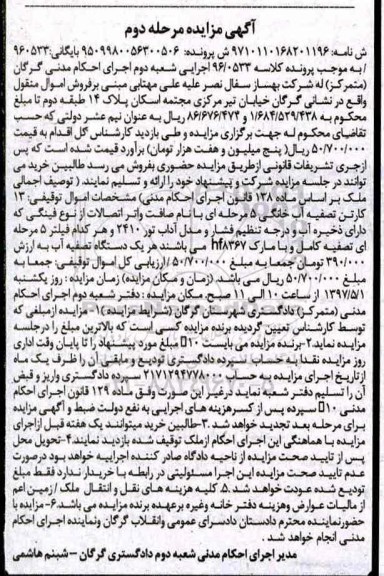 آگهی مزایده مرحله دوم
ش نامه: ۹۷۱۰۱۱۰۱۶۸۲۰۱۱۹۶ ش پرونده: ۹۵۰۹۹۸۰۰۵۶۳۰۰۵۰۶ بایگانی: ۹۶۰۵۳۳
/ به موجب پرونده کلاسه ۹۶/۰۵۳۳ اجرایی شعبه دوم اجرای احکام مدنی گرگان
(متمرکز) له شرکت بهساز سفال نصر علیه علی مهتابی مبنی برفروش اموال منقول
واقع در نشانی گرگان خیابان تیر مرکزی مجتمه اسکان پلاک ۱۴ طبقه دوم تا مبلغ
محکوم به ۱/۶۸۴/۵۲۹/۴۳۸ و ۸۶/۶۷۶/۴۷۴ ریال به عنوان نیم عشر دولتی که حسب
تقاضای محکوم له جهت برگزاری مزایده و طی بازدید کارشناس کل اقدام به قیمت
۵۰/۷۰۰/۰۰۰ ریال( پنج میلیون و هفت هزار تومان) برآورد قیمت شده است که پس
ازجری تشریفات قانونی ازطریق مزایده حضوری بفروش می رسد طالبین خرید می
توانند در جلسه مزایده شرکت و پیشنهاد خود را ارائه و تسلیم نمایند. ( توصیف اجمالی
ملک بر اساس ماده ۱۳۸ قانون اجرای احکام مدنی) مشخصات اموال توقیفی: ۱۳
کارتن تصفیه آب خانگی ۵ مرحله ای با نام صافت واتر اتصالات از نوع فینگی که
دارای ذخیره آب و درجه تنظیم فشار و مدل آداب تور ۲۴۱۰ و هر کدام فیلتر ۵ مرحله
ای تصفیه کامل و با مارک hf۸۳۶۷ می باشند هر یک دستگاه تصفیه آب به ارزش
۳۹۰/۰۰۰ تومان جمعا به مبلغ ۵۰/۷۰۰/۰۰۰ /ارزیابی کل اموال توقیفی: جمعا به
مبلغ ۵۰/۷۰۰/۰۰۰ ریال می باشد. (زمان و مکان مزایده) زمان مزایده : روز یکشنبه
۱۳۹۷/۵/۱ از ساعت ۱۰ الی ۱۱ صبح. مکان مزایده : دفتر شعبه دوم اجرای احکام
مدنی (متمرکز) دادگستری شهرستان گرگان (شرایط مزایده) ۱- مزایده ازمبلغی که
توسط کارشناس تعیین گردیده برنده مزایده کسی است که بالاترین مبلغ را درجلسه
مزایده نماید.۲-برنده مزایده می بایست ۱۰٪ مبلغ مورد پیشنهاد را تا پایان وقت اداری
روز مزایده نقدا به حساب سپرده دادگستری تودیع و مابقی آن را ظرف یک ماه
ازتاریخ اجرای مزایده به حساب ۲۱۷۱۲۹۴۷۷۸۰۰۰ سپرده دادگستری واریز و قبض
آن را تسلیم دفتر شعبه نماید درغیر این صورت وفق ماده ۱۲۹ قانون اجرای احکام
مدنی ۱۰٪ سپرده پس از کسرهزینه های اجرایی به نفع دولت ضبط و آگهی مزایده
برای مرحله بعد تجدید خواهد شد. ۳-طالبین خرید میتوانند یک هفته قبل ازاجرای
مزایده با هماهنگی این اجرای احکام ازملک توقیف شده بازدید نمایند.۴-تحویل محل
پس از تایید صحت مزایده از ناحیه دادگاه صادر کننده اجراییه خواهد بود درصورت
عدم تایید صحت مزایده این اجرا مسئولیتی در رابطه با خریدار ندارد فقط مبلغ
تودیع شده عودت خواهد شد. ۵. کلیه هزینه های نقل و انتقال ملک / زمین اعم
از مالیات عوارض وهزینه دفتر خانه وغیره برعهده برنده مزایده می باشد.۶- مزایده با
حضورنماینده محترم دادستان دادسرای عمومی وانقلاب گرگان ونماینده اجرای احکام
مدنی انجام خواهد شد .
مدیر اجرای احکام مدنی شعبه دوم دادگستری گرگان – شبنم هاشمی